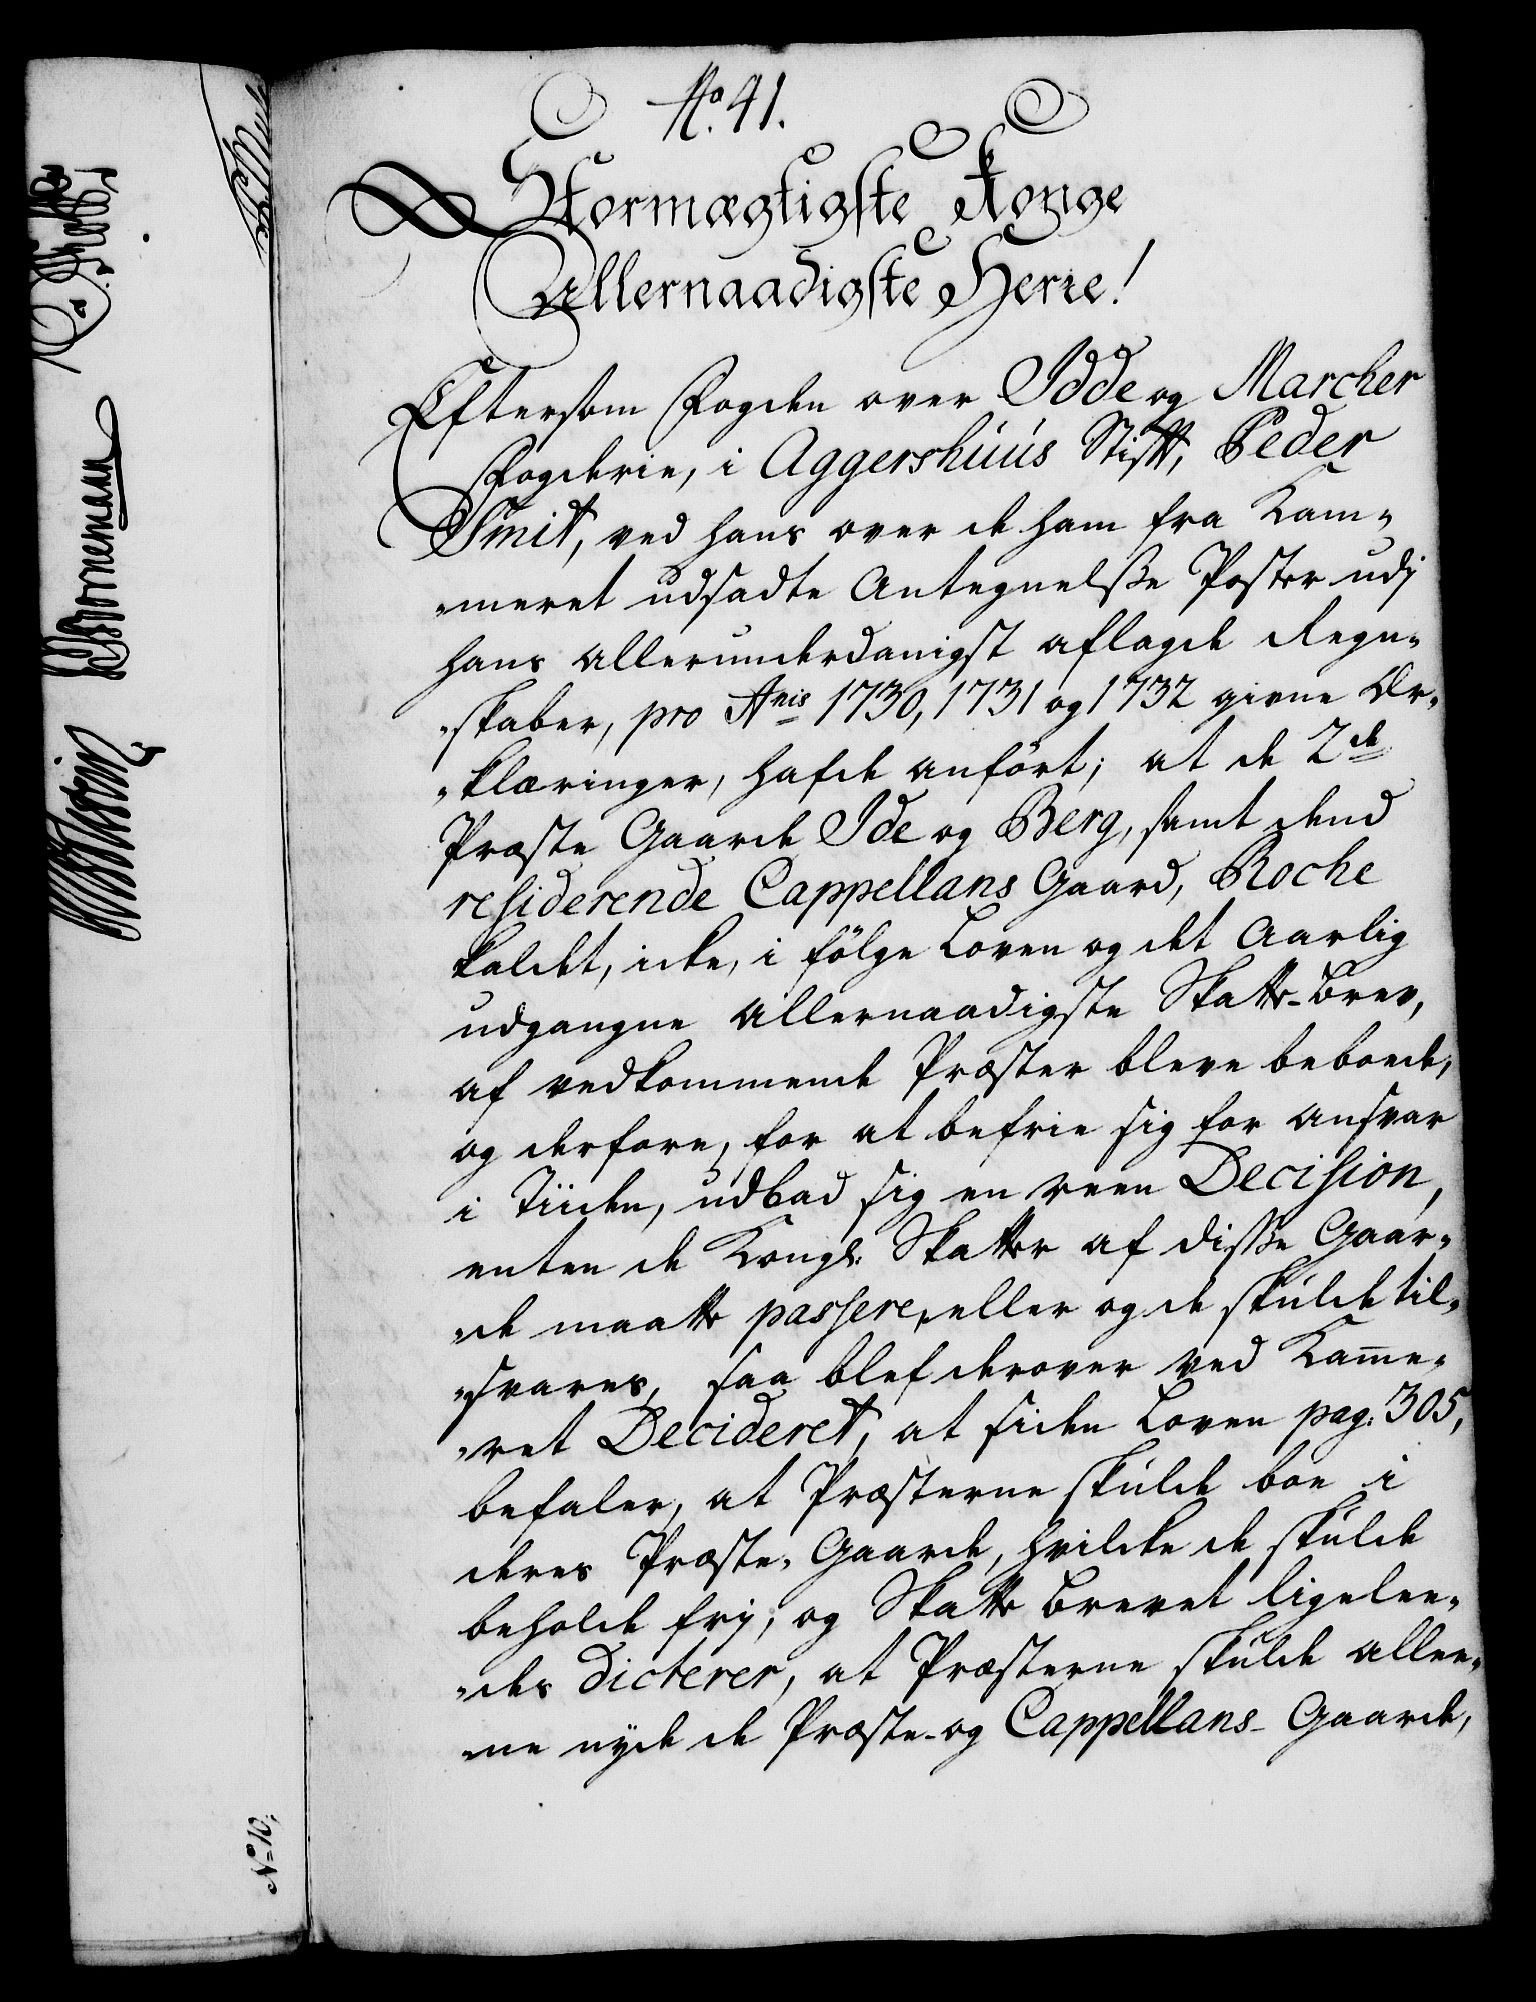 No. 41.
Stormægtigste Konge
Allernaadigste Herre!
Eftersom Fogden over Idde og Marcher
Fogderie, i Aggershuus Stift, Peder
Smit, ved hans over de ham fra Kam-
meret udsadte Antegnelsse Poster udj
hans allerunderdanigst aflagde Regn-
skaber, pro Anis 1730, 1731 og 1732 givne Er-
klæringer, hafde anført; at de 2de
Præste Gaarde Ide og Berg, samt dend
residerende Cappellans Gaard, Roche
kaldet, icke, i følge Loven og det Aarlig
udgangne allernaadigste Skatte-brev,
af vedkommende Præster bleve beboede,
og derfore, for at befrie sig for ansvar
i Tiiden, udbad sig en reen Decision,
enten de Kongl: Skatter af disse Gaar-
de maatte passere, eller og de skulde til-
svares, saa blef derover ved Kamme-
ret Decideret, at siden Loven pag: 305,
befaler, at Præsterne skulde boe i
deres Præste-Gaarde, hvilcke de skulde
beholde frj, og Skatte brevet ligelee-
des dicterer, at Præsterne skulde allee-
ne nyde de Præste- og Cappellans-Gaarde,
Bornemann
No 10.